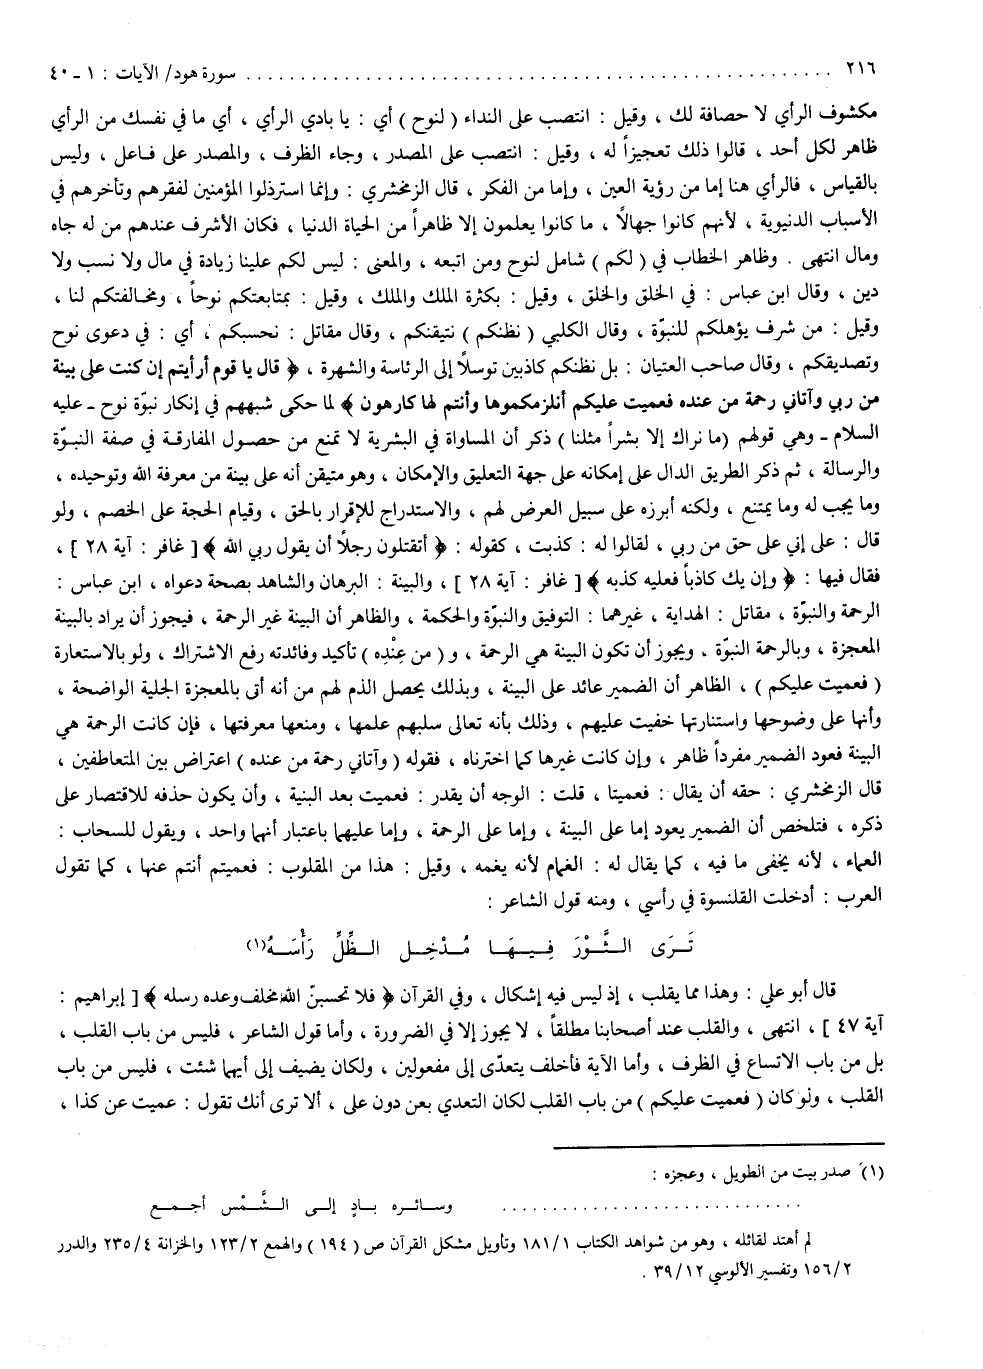 ٢١٦ ............................................................ سورة هود/ الآيات : ١ - ٤٠
مكشوف الرأي لا حصافة لك ، وقيل : انتصب على النداء ( لنوح ) أي : يا بادي الرأي ، أي ما في نفسك من الرأي
ظاهر لكل أحد ، قالوا ذلك تعجيزاً له ، وقيل : انتصب على المصدر ، وجاء الظرف ، والمصدر على فاعل ، وليس
بالقياس ، فالرأي هنا إما من رؤية العين ، وإما من الفكر ، قال الزمخشري : وإنما استرذلوا المؤمنين لفقرهم وتأخرهم في
الأسباب الدنيوية ، لأنهم كانوا جهالاً ، ما كانوا يعلمون إلا ظاهراً من الحياة الدنيا ، فكان الأشرف عندهم من له جاه
ومال انتهى . وظاهر الخطاب في ( لكم ) شامل لنوح ومن اتبعه ، والمعنى : ليس لكم علينا زيادة في مال ولا نسب ولا
دين ، وقال ابن عباس : في الخلق والخلق ، وقيل : بكثرة الملك والملك ، وقيل : بمتابعتكم نوحاً ، ومخالفتكم لنا ،
وقيل : من شرف يؤهلكم للنبوّة ، وقال الكلبي ( نظنكم ) نتيقنكم ، وقال مقاتل : نحسبكم ، أي : في دعوى نوح
وتصديقكم ، وقال صاحب العتيان : بل نظنكم كاذبين توسلاً إلى الرئاسة والشهرة ، ﴿ قال يا قوم أرأيتم إن كنت على بينة
من ربي وآتاني رحمة من عنده فعميت عليكم أنلزمكموها وأنتم لها كارهون ﴾ لما حكى شبههم في إنكار نبوّة نوح - عليه
السلام - وهي قولهم (ما نراك إلا بشراً مثلنا ) ذكر أن المساواة في البشرية لا تمنع من حصول المفارقة في صفة النبوّة
والرسالة ، ثم ذكر الطريق الدال على إمكانه على جهة التعليق والإمكان ، وهو متيقن أنه على بينة من معرفة الله وتوحيده ،
وما يجب له وما يمتنع ، ولكنه أبرزه على سبيل العرض لهم ، والاستدراج للإقرار بالحق ، وقيام الحجة على الخصم ، ولو
قال : على إني على حق من ربي ، لقالوا له : كذبت ، كقوله : ﴿ أتقتلون رجلاً أن يقول ربي الله ﴾ [ غافر : آية ٢٨ ] ،
فقال فيها : ﴿ وإن يك كاذباً فعليه كذبه ﴾ [ غافر : آية ٢٨ ] ، والبينة : البرهان والشاهد بصحة دعواه ، ابن عباس :
الرحمة والنبوّة ، مقاتل : الهداية ، غيرهما : التوفيق والنبوّة والحكمة ، والظاهر أن البينة غير الرحمة ، فيجوز أن يراد بالبينة
المعجزة ، وبالرحمة النبوّة ، ويجوز أن تكون البينة هي الرحمة ، و ( من عِنْدِه ) تأكيد وفائدته رفع الاشتراك ، ولو بالاستعارة
( فعميت عليكم ) ، الظاهر أن الضمير عائد على البينة ، وبذلك يحصل الذم لهم من أنه أتى بالمعجزة الجلية الواضحة ،
وأنها على وضوحها واستنارتها خفيت عليهم ، وذلك بأنه تعالى سلبهم علمها ، ومنعها معرفتها ، فإن كانت الرحمة هي
البينة فعود الضمير مفرداً ظاهر ، وإن كانت غيرها كما اخترناه ، فقوله ( وآتاني رحمة من عنده ) اعتراض بين المتعاطفين ،
قال الزمخشري : حقه أن يقال : فعميتا ، قلت : الوجه أن يقدر : فعميت بعد البنية ، وأن يكون حذفه للاقتصار على
ذكره ، فتلخص أن الضمير يعود إما على البينة ، وإما على الرحمة ، وإما عليهما باعتبار أنهما واحد ، ويقول للسحاب :
العماء ، لأنه يخفى ما فيه ، كما يقال له : الغمام لأنه يغمه ، وقيل : هذا من المقلوب : فعميتم أنتم عنها ، كما تقول
العرب : أدخلت القلنسوة في رأسي ، ومنه قول الشاعر :
تَرَى الثَّوْرَ فِيهَا مُدْخِلَ الظِّلِّ رَأْسَهُ(١)
قال أبو علي : وهذا مما يقلب ، إذ ليس فيه إشكال ، وفي القرآن ﴿ فلا تحسبنّ الله مخلف وعده رسله ﴾ [ إبراهيم :
آية ٤٧ ] ، انتهى ، والقلب عند أصحابنا مطلقاً ، لا يجوز إلا في الضرورة ، وأما قول الشاعر ، فليس من باب القلب ،
بل من باب الاتساع في الظرف ، وأما الآية فأخلف يتعدّى إلى مفعولين ، ولكان يضيف إلى أيهما شئت ، فليس من باب
القلب ، ولو كان ( فعميت عليكم ) من باب القلب لكان التعدي بعن دون على ، ألا ترى أنك تقول : عميت عن كذا ،
(١) صدر بيت من الطويل ، وعجزه :
............................ وسائره بادٍ إلى الشَّمْس أجمع
لم أهتد لقائله ، وهو من شواهد الكتاب ١٨١/١ وتأويل مشكل القرآن ص ( ١٩٤ ) والهمع ١٢٣/٢ والخزانة ٢٣٥/٤ والدرر
١٥٦/٢ وتفسير الألوسي ٣٩/١٢ .